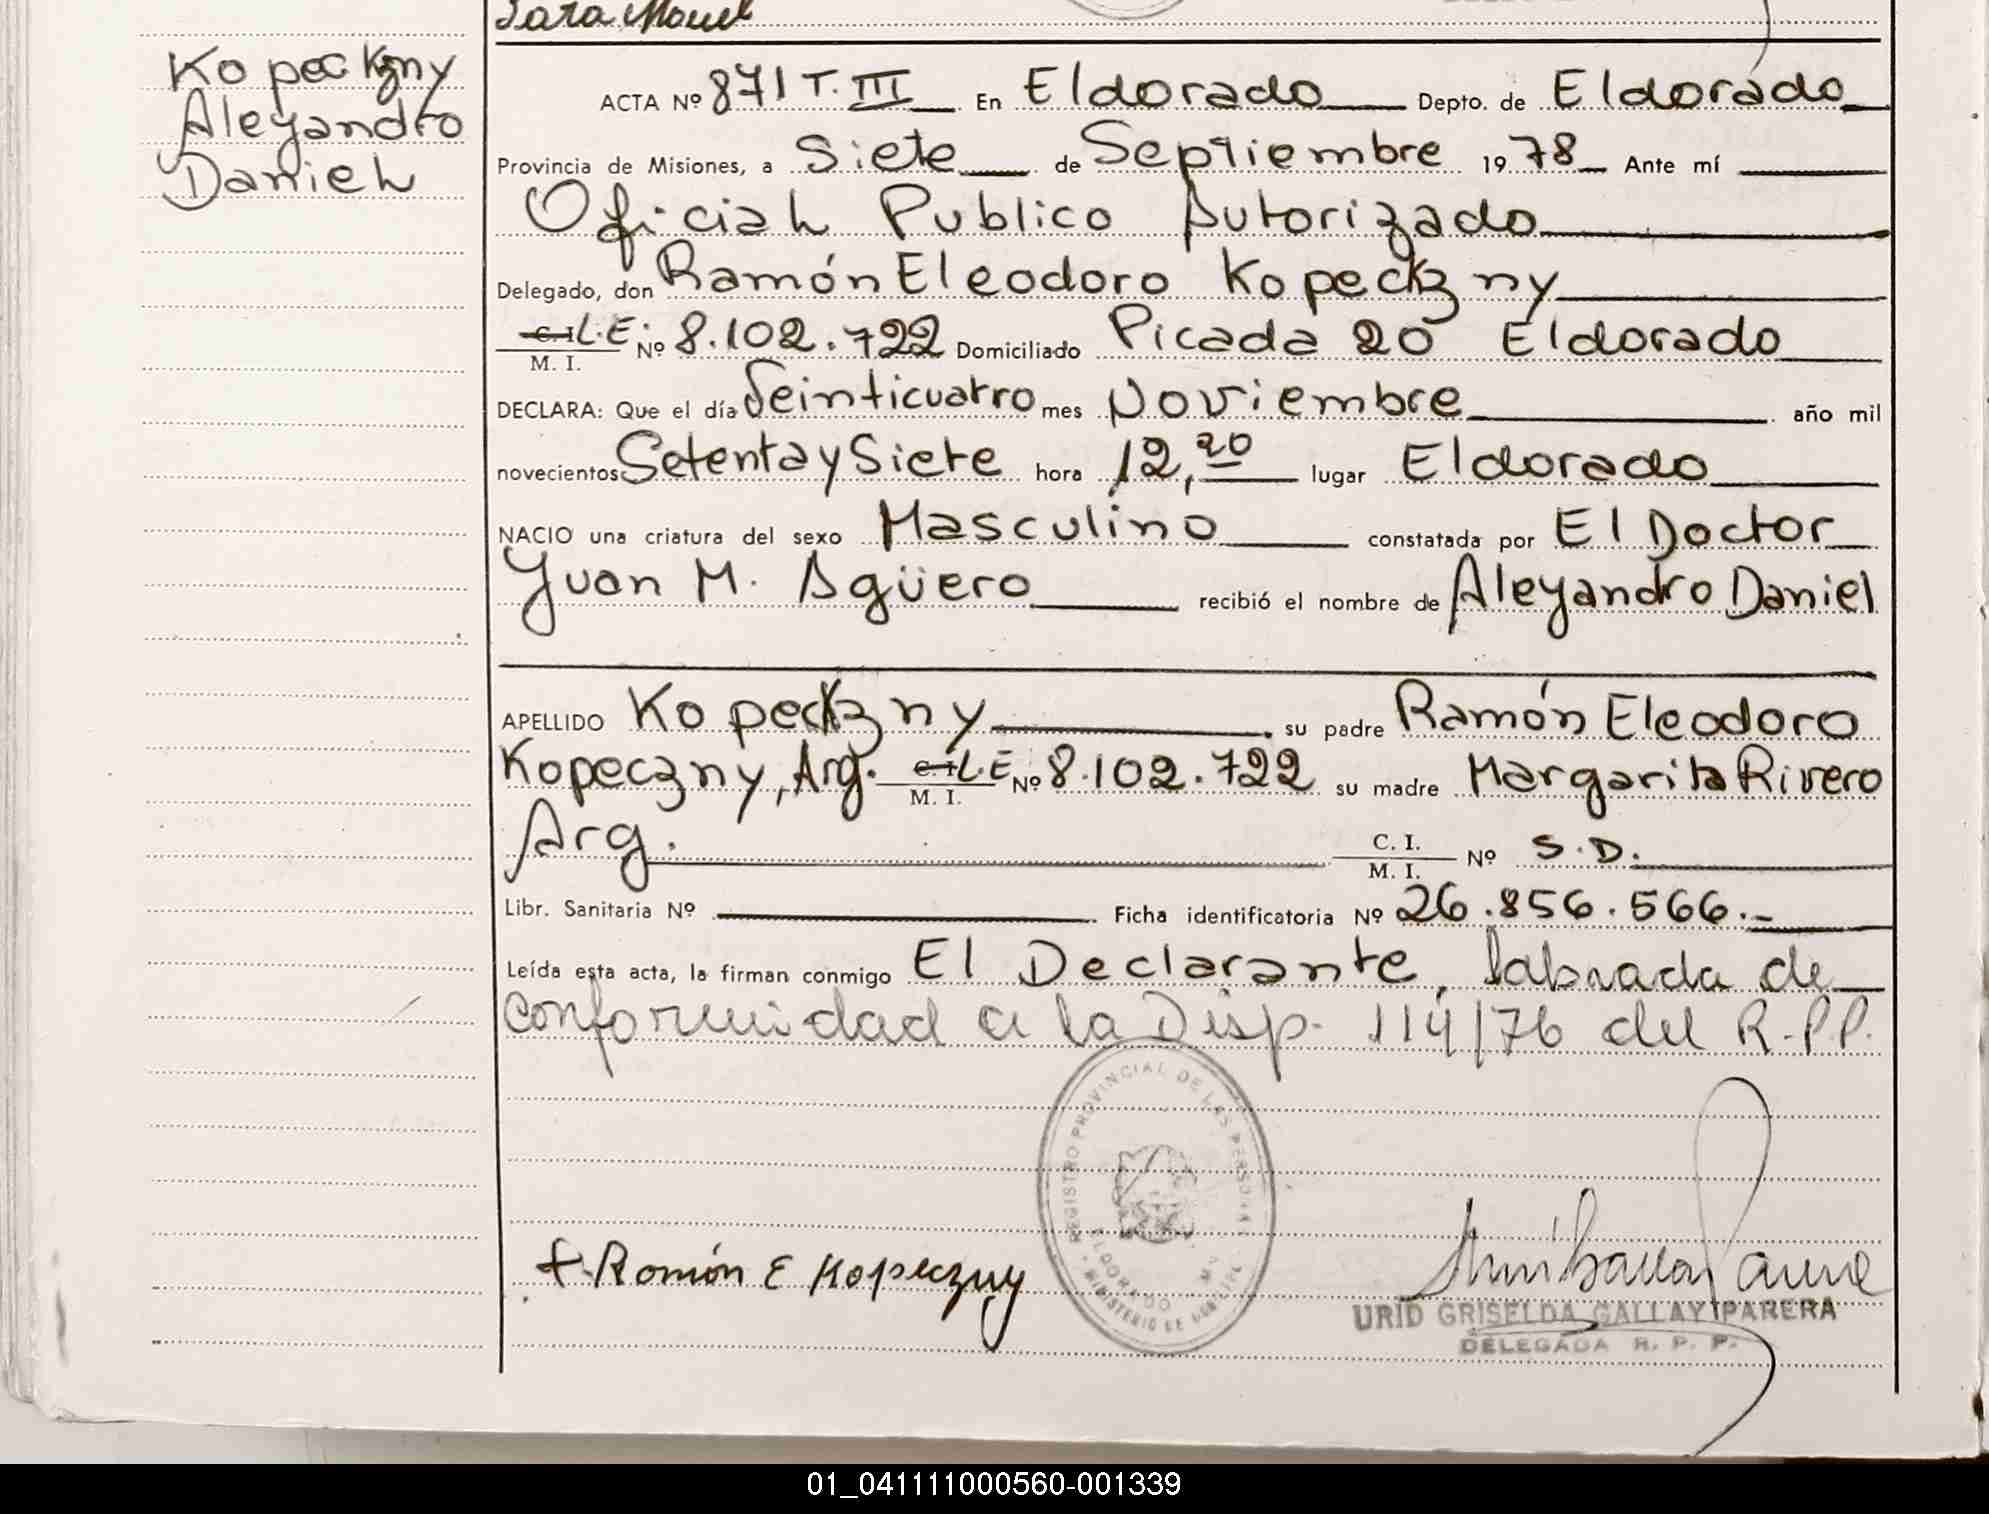 Sara Mouel
Kopeckzny
Aleyandro
Daniel
ACTA Nº 871 T. III En Eldorado Depto. de Eldorado
Provincia de Misiones, a Siete de Septiembre 1978 Ante mí
Oficial Publico Autorizado
Delegado, don Ramón Eleodoro Kopeckzny
C. I. L.E. Nº 8.102.722 Domiciliado Picada 20 Eldorado
M. I.
DECLARA: Que el día Veinticuatro mes Noviembre año mil
novecientos Setenta y Siete hora 12,20 lugar Eldorado
NACIO una criatura del sexo Masculino constatada por El Doctor
Yuan M. Agüero recibió el nombre de Aleyandro Daniel
APELLIDO Kopeckzny su padre Ramón Eleodoro
Kopeczny, Arg. C. I. L.E Nº 8.102.722 su madre Margarita Rivero
M. I.
Arg. C. I. Nº S.D.
M. I.
Libr. Sanitaria Nº Ficha identificatoria Nº 26.856.566.-
Leída esta acta, la firman conmigo El Declarante, labrada de
conformidad a la Disp. 114/76 del R.P.P.
REGISTRO PROVINCIAL DE LAS PERSONAS
ELDORADO
MINISTERIO DE
Ramón E Kopeczny
URID GRISELDA GALLAY PARERA
DELEGADA R. P. P.
01_041111000560-001339